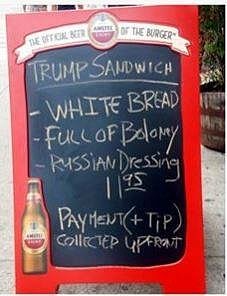 THE OFFICIAL BEER AMSTEL LIGHT OF THE BURGER
TRUMP SANDWICH
- WHITE BREAD
- FULL OF Baloney
- RUSSIAN Dressing
11 95
PAYMENT (+ TIP)
COLLECTED UPFRONT
AMSTEL
LIGHT